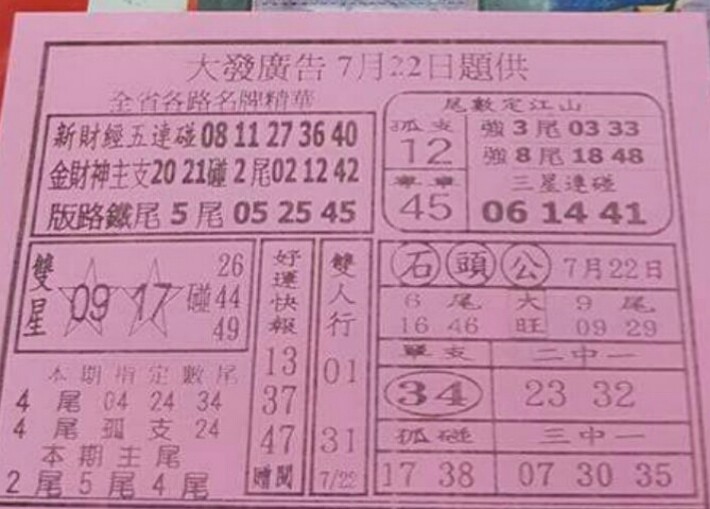 大發廣告 7月22日題供
全省各路名牌精華
新財經五連碰 08 11 27 36 40
金財神主支 20 21 碰 2 尾 02 12 42
版路鐵尾 5 尾 05 25 45
尾數定江山
孤支
12
強 3 尾 03 33
強 8 尾 18 48
45
三星連碰
06 14 41
雙星
09 17 碰
26
44
49
本期指定數尾
4 尾 04 24 34
4 尾 孤支 24
本期主尾
2 尾 5 尾 4 尾
好運快報
13
37
47
贈閱
雙人行
01
31
7/22
石頭公 7月22日
6 尾
16 46
大旺
9 尾
09 29
單支
34
二中一
23 32
孤碰
17 38
三中一
07 30 35